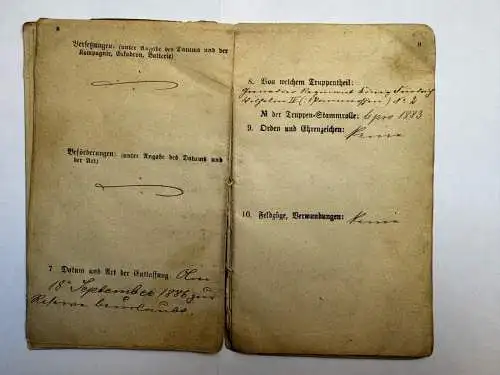 8
Versetzungen: (unter Angabe des Datums und der
Kompagnie, Eskadron, Batterie)
Beförderungen: (unter Angabe des Datums und
der Art)
7 Datum und Art der Entlassung: Am
18 September 1886 zur
Reserve beurlaubt.
9
8. Von welchem Truppentheil:
Grenadier Regiment König Friedrich
Wilhelm IV (1 Pommersches) No 2
№ der Truppen-Stammrolle: 6 pro 1883
9. Orden und Ehrenzeichen: Keine
10. Feldzüge, Verwundungen: Keine